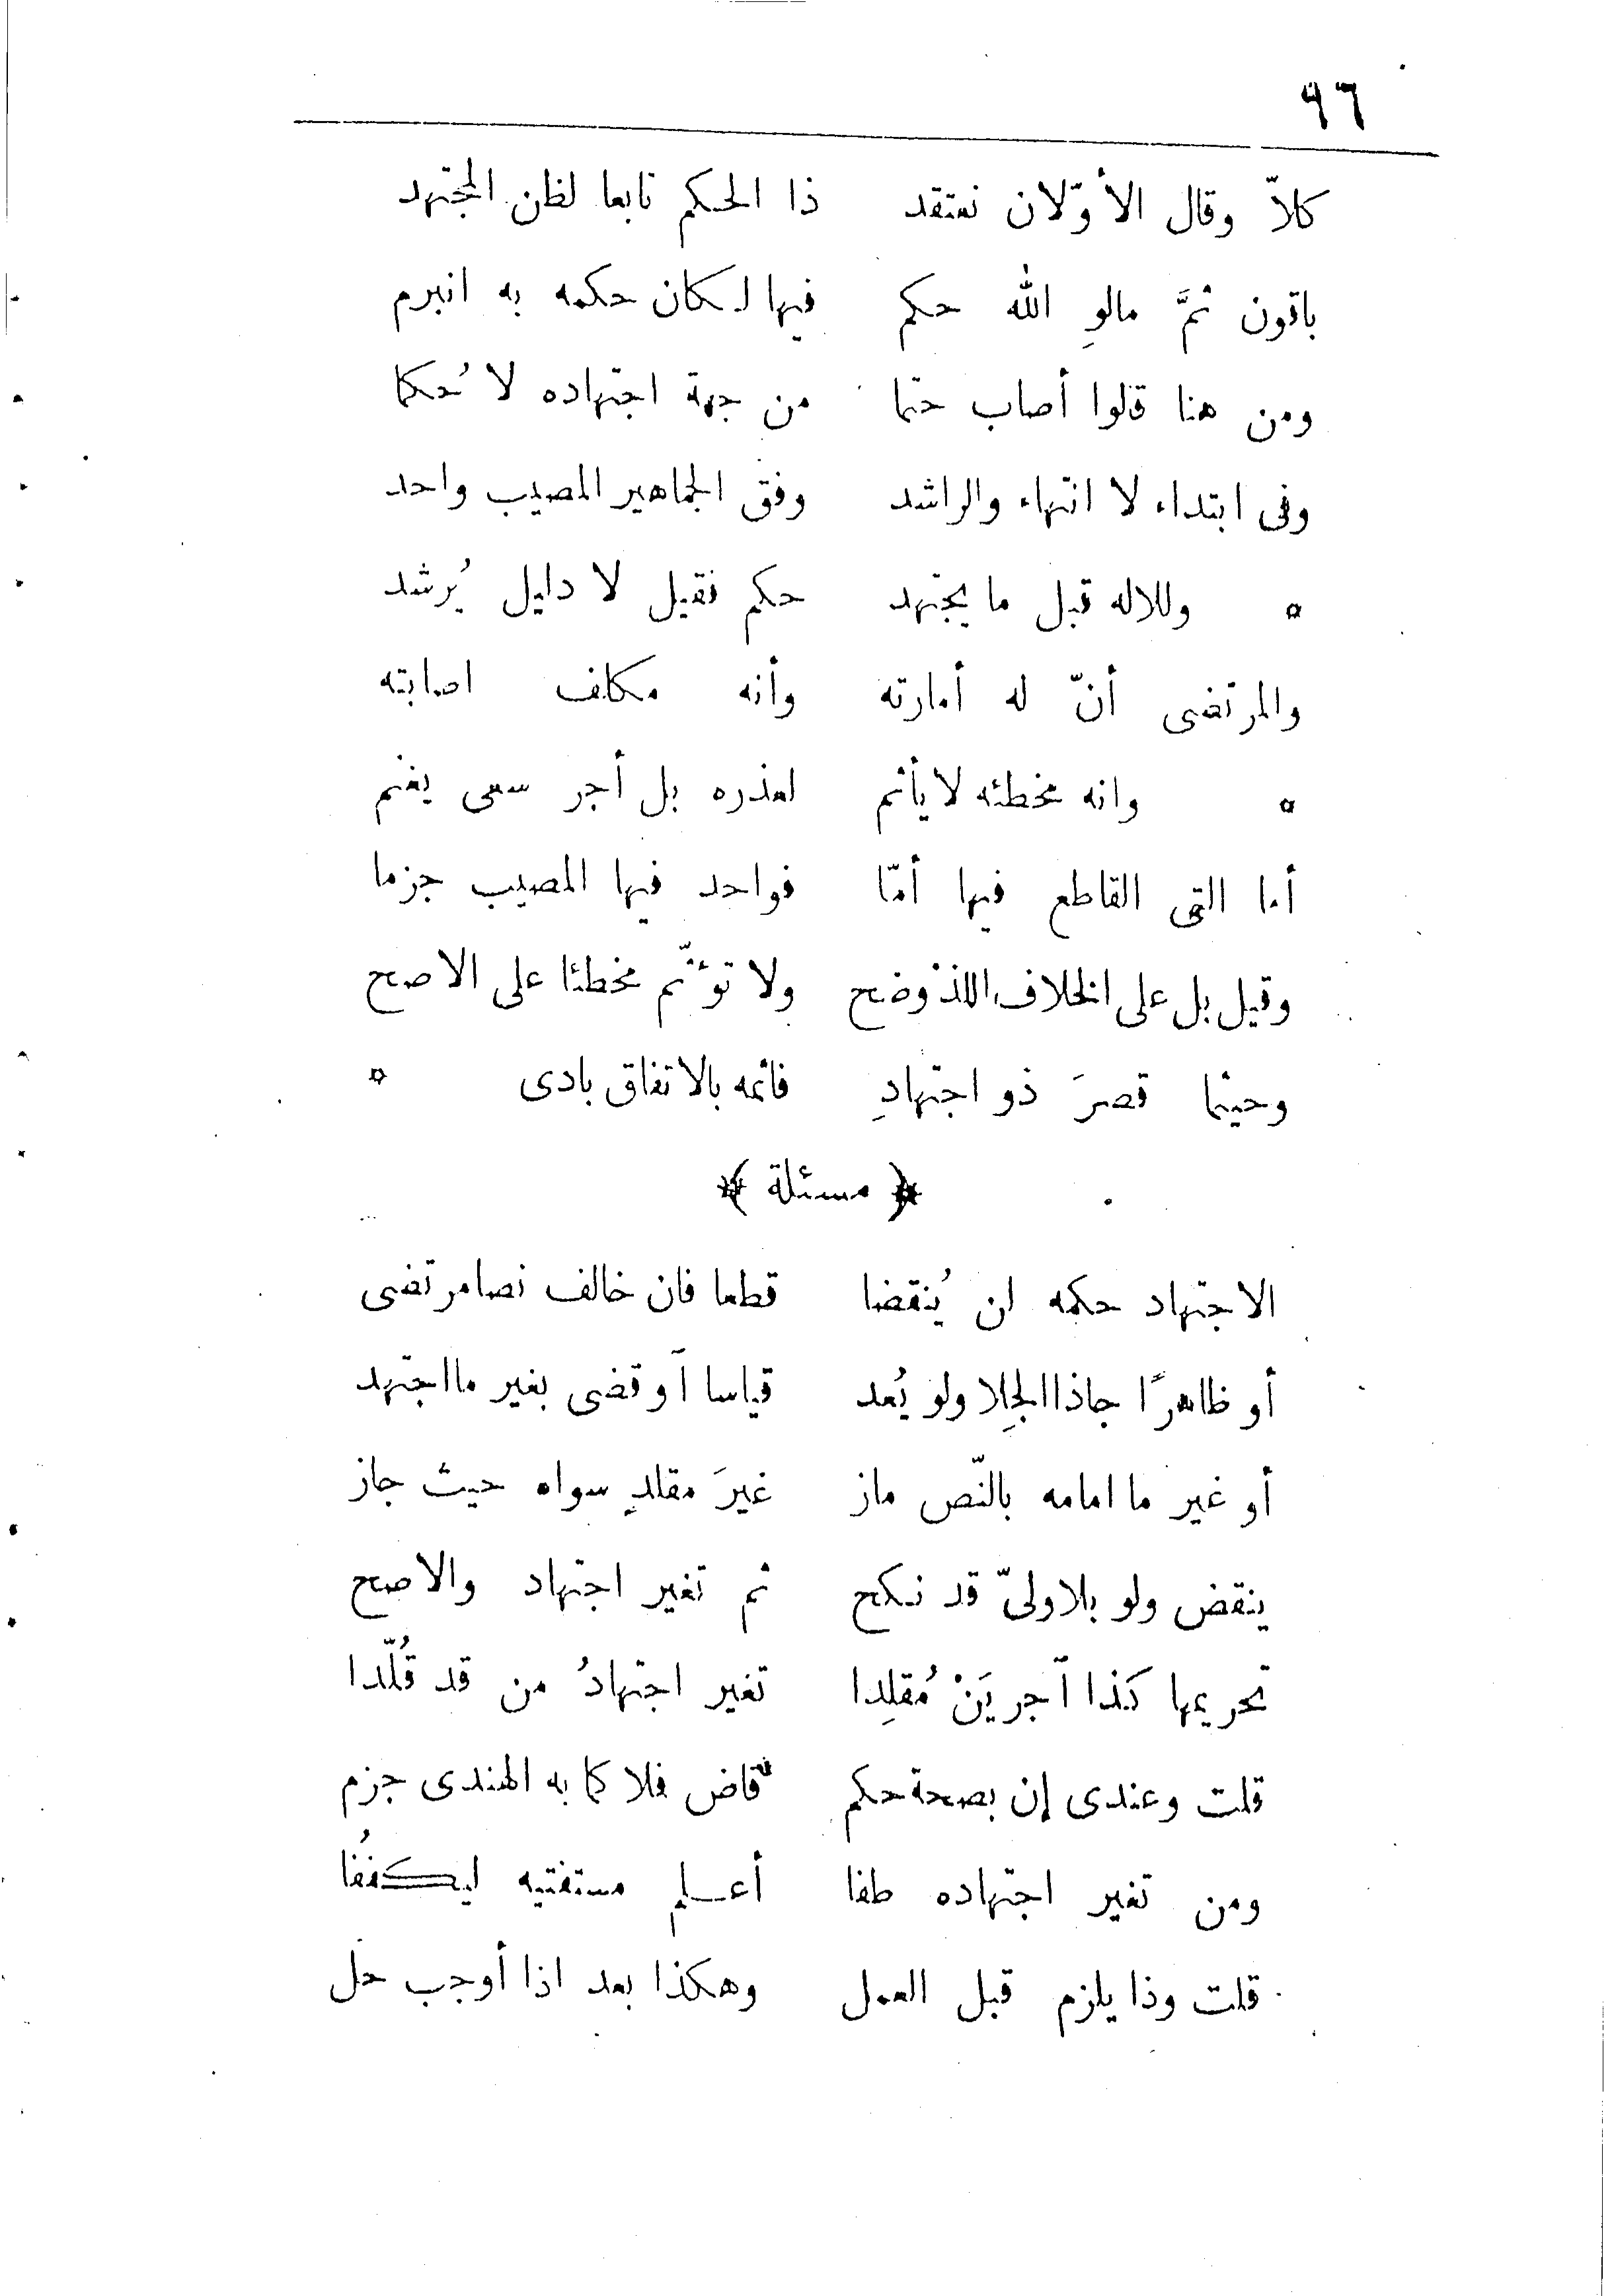 ٩٦
كلاّ وقال الأوّلان نعتقد ذا الحكم تابعا لظن المجتهد
باقون ثمَّ مالوِ الله حكم فيها لكان حكمه به انبرم
ومن هنا قالوا أصاب حتما من جهة اجتهاده لا حُكما
وفى ابتداء لا انتهاء والراشد وفق الجماهير المصيب واحد
¤ وللاله قبل ما يجتهد حكم فقيل لا دليل يُرشد
والمرتضى أنّ له أمارته وأنه مكلف اصابته
¤ وانه مخطئه لا يأثم لعذره بل أجر سعى يغنم
أما التى القاطع فيها أمّا فواحد فيها المصيب جزما
وقيل بل على الخلاف اللذ وضح ولا تؤثّم مخطئا على الاصح
وحيثما قصرَ ذو اجتهادِ فاثمه بالاتفاق بادى ¤
﴿ مسئلة ﴾
الاجتهاد حكمه لن يُنقضا قطعا فان خالف نصا مرتضى
أو ظاهرًا جاذا الجِلا ولو يُعد قياسا آو قضى بغير ما اجتهد
أو غير ما امامه بالنّص ماز غيرَ مقلدٍ سواه حيث جاز
ينقض ولو بلا ولىّ قد نكح ثم تغير اجتهاد والاصح
تحريمها كذا آجريَنْ مُقلِدا تغير اجتهادُ من قد قُلّدا
قلت وعندى إن بصحة حكم قاض فلا كما به الهندى جزم
ومن تغير اجتهاده طفا أعلم مستفتيه ليكففُا
قلت وذا يلزم قبل العمل وهكذا بعد اذا أوجب حل